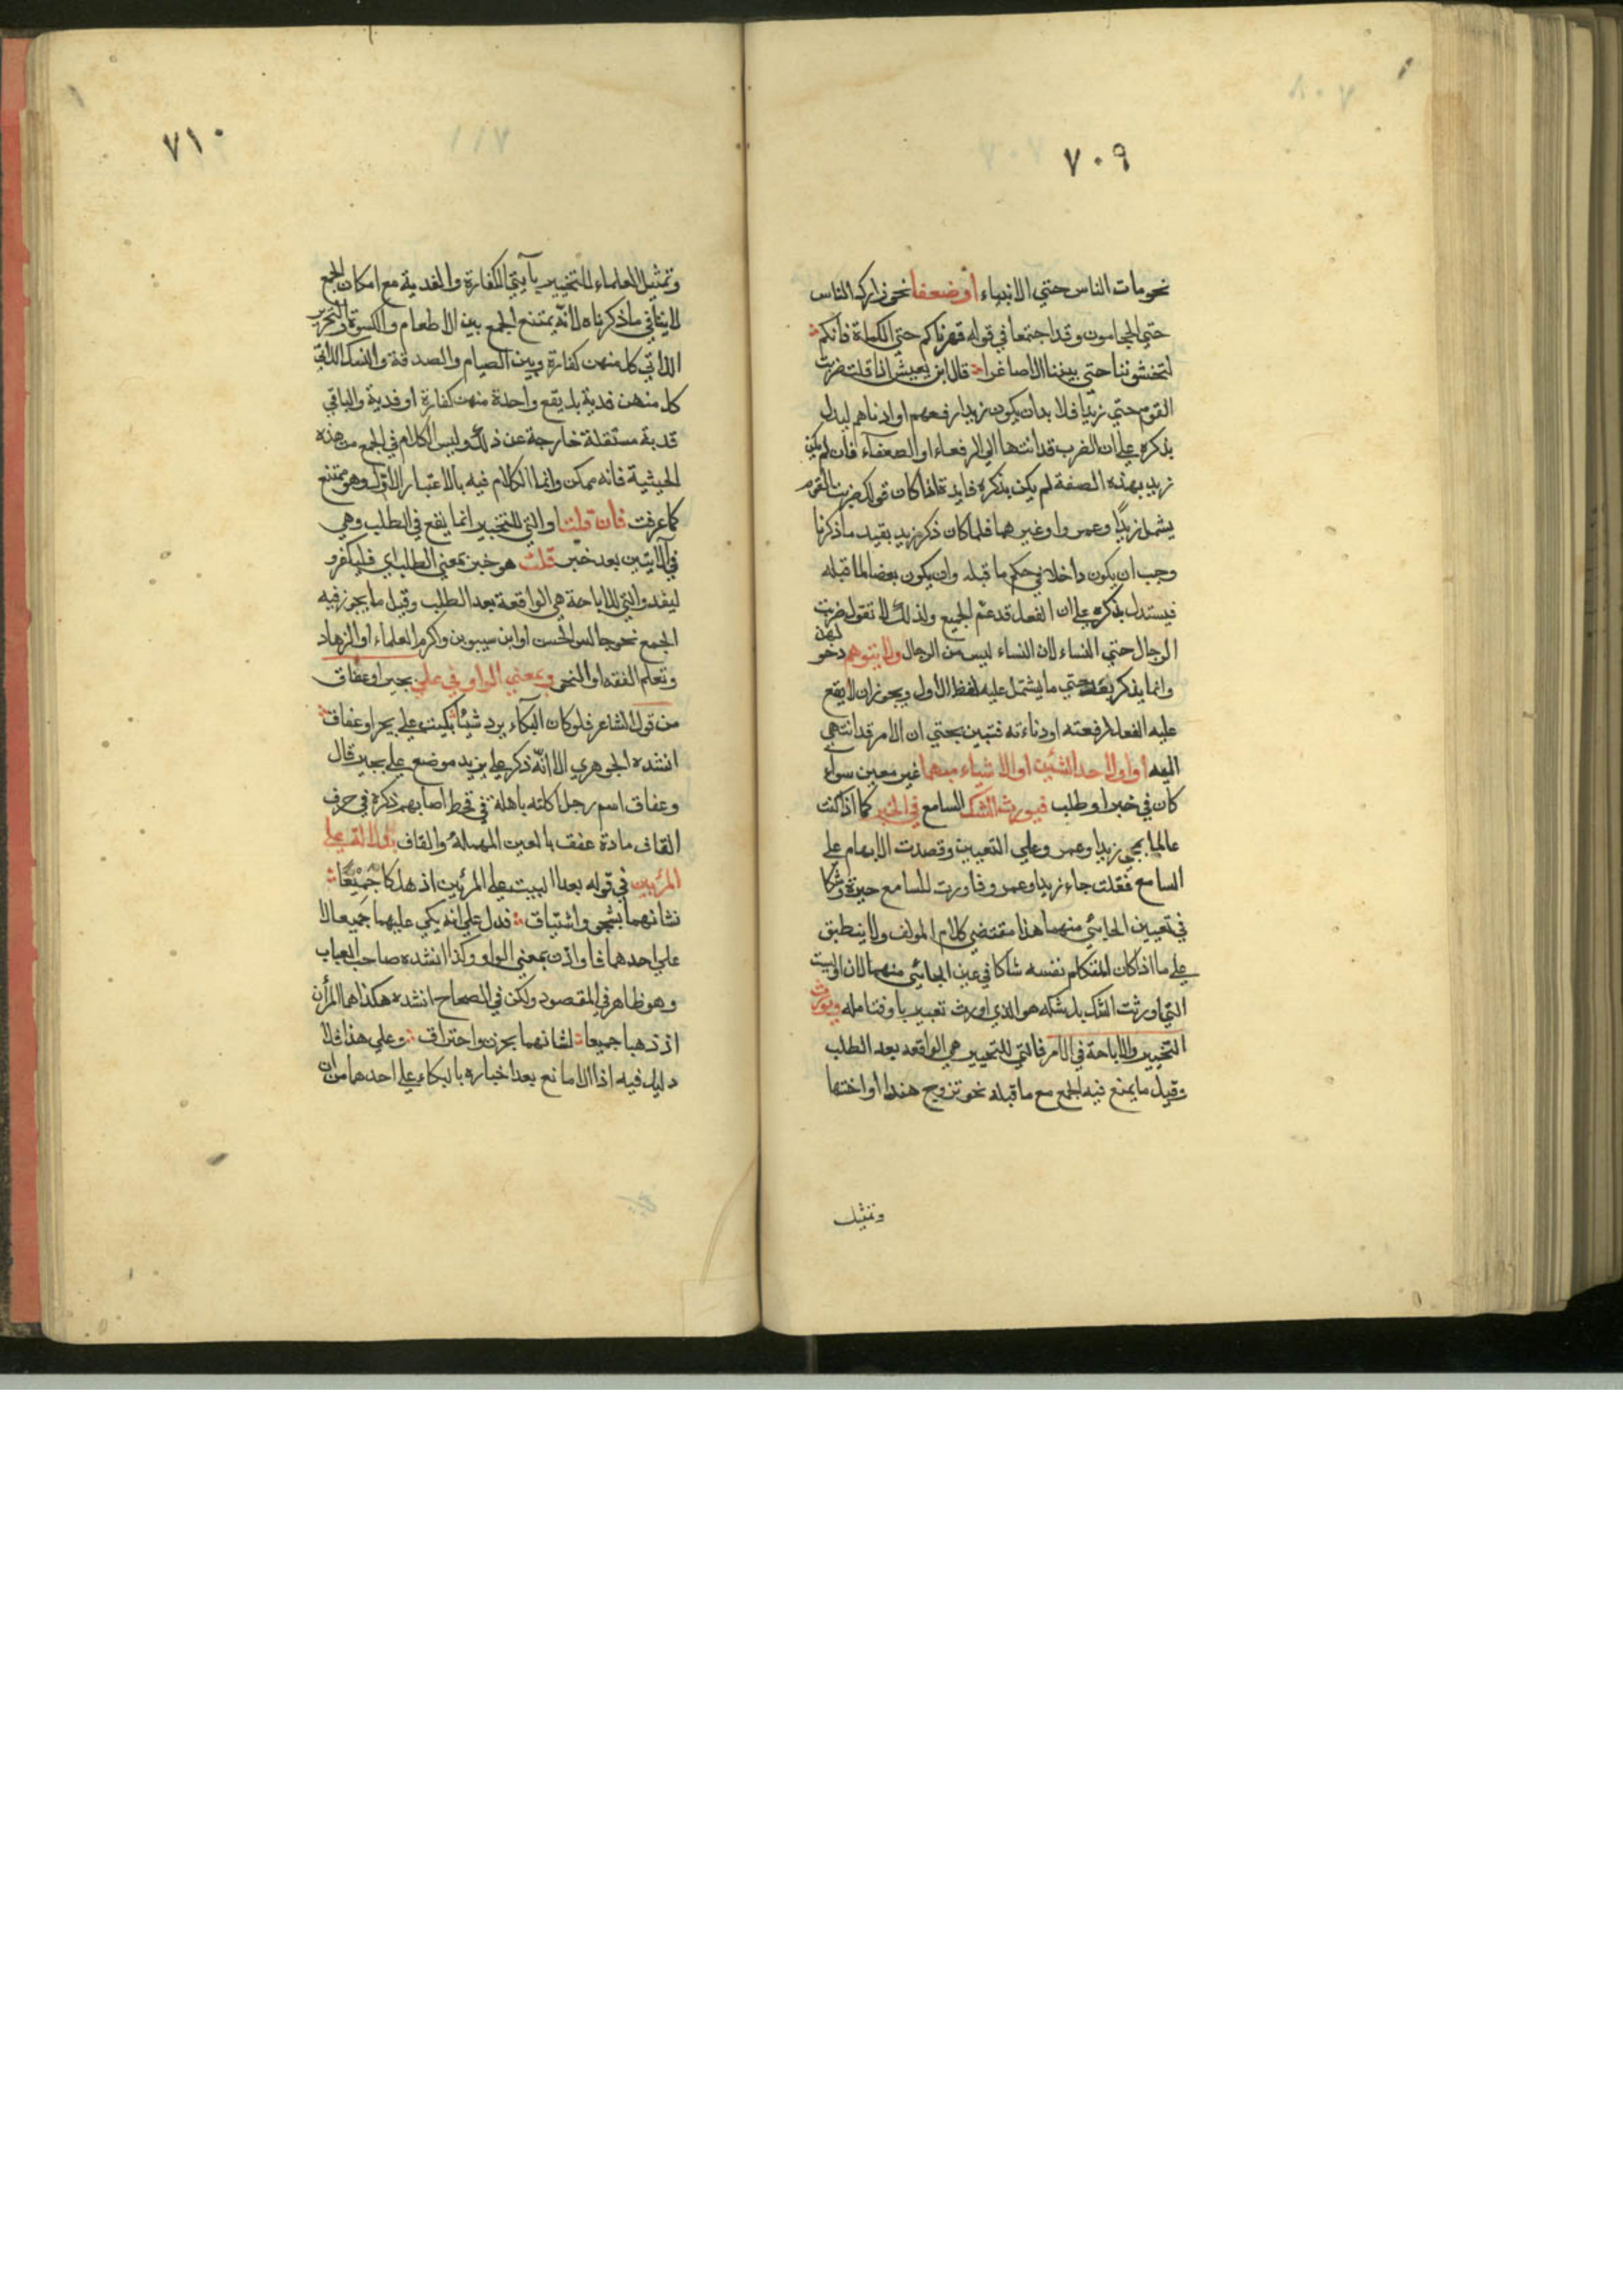 ٧٠٩
نحو مات الناس حتي الانبياء أو ضعفا نحو زارك الناس
حتي الحجامون وقد اجتمعا في قوله قهرناكم حتي الكماة فانكم
لتخشوننا حتي بنينا الاصاغرا قال ابن يعيش اذا قلت ضربت
القوم حتي زيدا فلا بد ان يكون زيدا رفعهم او ادناهم ليدل
بذكره علي ان الضرب قد انتها الي الرفعاء او الضعفاء فان لم يكن
زيد بهذه الصفة لم يكن بذكره فايدة اذا كان قولك ضربت القوم
يشمل زيدا وعمروا وغيرهما فلما كان ذكر زيد يفيد ما ذكرنا
وجب ان يكون داخلا في حكم ما قبله وان يكون بعضا لما قبله
فيستدل بذكره علي ان الفعل قد عم الجميع ولذلك لا تقول ضربت
الرجال حتي النساء لان النساء ليس من الرجال ولا يتوهم دخولهن
وانما يذكر بعد حتي ما يشتمل عليه لفظ الاول ويجوز ان لا يقع
عليه الفعل لرفعته او دناءته فتبين بحتي ان الامر قد انتهي
اليه او اولاحد الشئين او الاشياء مبهما غير معين سواء
كان في خبر او طلب فيورث الشك السامع في الخبر كما اذا كنت
عالما بمجي زيد او عمرو علي التعيين وقصدت الابهام علي
السامع فقلت جاء زيد او عمرو فاورث للسامع حيرة وشكا
في تعيين الجائي منهما هذا مقتضي كلام المولف ولا ينطبق
علي ما اذا كان المتكلم نفسه شاكا في عين الجائي منهما لان او ليست
التي اورثت الشك بل شكه هو الذي اورث تعبير باو فتامله ويورث
التخيير والاباحة في الامر فالتي للتخيير هي الواقعه بعد الطلب
وقبل ما يمنع فيه الجمع مع ما قبله نحو تزوج هندا أو اختها
وتمثيل
٧١٠
وتمثيل العلماء للتخيير بآيتي الكفارة والفدية مع امكان الجمع
لا ينافي ما ذكرناه لانه يمتنع الجمع بين الاطعام والكسوة والتحرير
اللاتي كل منهن كفارة وبين الصيام والصدقة والنسك اللاتي
كل منهن فدية بل يقع واحدة منهن كفارة او فدية والباقي
قدبة مستقلة خارجة عن ذلك وليس الكلام في الجمع من هذه
الحيثية فانه ممكن وانما الكلام فيه بالاعتبار الاول وهو ممتنع
كما عرفت فان قلت او التي للتخيير انما يقع في الطلب وهي
في الآيتين بعد خبر قلت هو خبر بمعني الطلب اي فليكفرو
ليفد والتي للاباحة هي الواقعة بعد الطلب وقبل ما يجوز فيه
الجمع نحو جالس الحسن او ابن سيبوين واكرم العلماء او الزهاد
وتعلم الفقه او النحو وبمعني الواو في علي بجير او عفاق
من قول الشاعر فلو كان البكاء يرد شيئا بكيت علي بجير او عفاق
انشده الجوهري الا انه ذكر علي يزيد موضع علي بجير قال
وعفاق اسم رجل اكلته باهلة في قحط اصابهم ذكره في حرف
القاف مادة عفق بالعين المهملة والقاف بدلالة علي
المرئين في قوله بعد البيت علي المرئين اذ هلكا جميعا
نشانهما بشجو واشتياق فدل علي انه يكي عليهما جميعا لا
علي احدهما فاو اذن بمعني الواو وكذا انشده صاحب العباب
وهو ظاهر في المقصود ولكن في الصحاح انشده هكذا هما المرأن
اذ ذهبا جميعا لشانهما بحزن واحتراق وعلي هذا فلا
دليل فيه اذ لا مانع بعد اخباره بالبكاء علي احدهما من ان